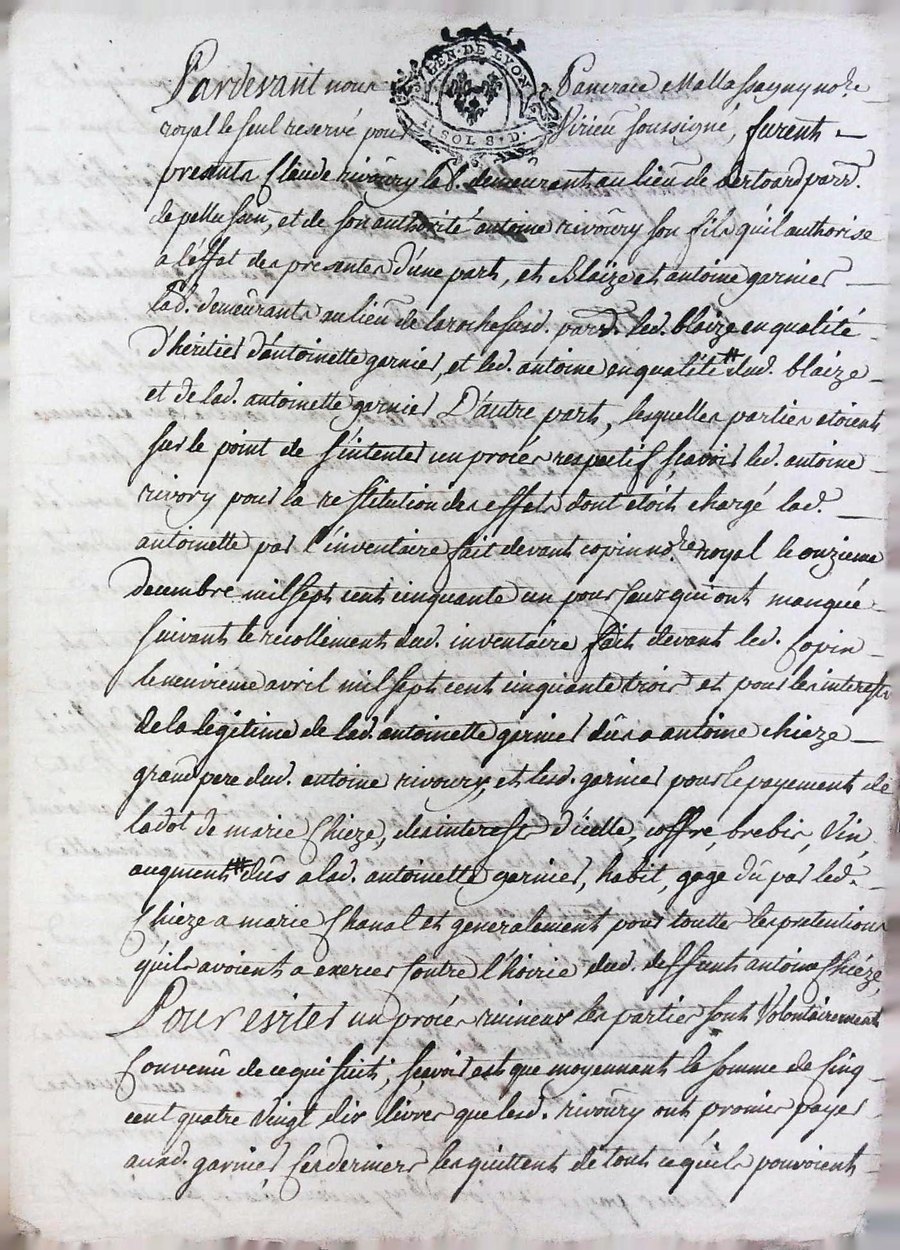 GEN. DE LYON
SOLS. D.
Pardevant nous Pancrace Mallassagny no.re
royal le seul reservé pour Virieu soussigné, furent
presents Claude rivoüry lab. demeurant au lieu de bertoard parr.
de pellussin, et de son authorité antoine rivoüry son fils qu'il authorise
a l'effet des presentes d'une part, et Blaize et antoine garnier
lab. demeurants au lieu de la rochefard. parr. led. blaize en qualité
d'héritier d'antoinette garnier, et led. antoine en qualité # dud. blaize
et de lad. antoinette garnier D'autre part, lesquelles parties etoient
sur le point de s'intenter un procés respectif sçavoir led. antoine
rivory pour la restitution des effets dont etoit chargé lad.
antoinette par l'inventaire fait devant copin no.re royal le onzieme
decembre mil sept cent cinquante un pour ceux qui ont manqué
suivant le recollement dud. inventaire fait devant led. Copin
le neuvieme avril mil sept cent cinquante trois et pour les interests
de la legitime de lad. antoinette garnier dûs a antoine chieze
grand pere dud. antoine rivoüry, et lesd. garnier pour le payement de
la dot de marie Chieze, des interests d'icelle, coffre, brebis, vin,
augment # dûs a lad. antoinette garnier, habit, gage dû par led.
Chieze a marie Chanal et generalement pour touttes les pretentions
qu'ils avoient a exercer contre l'hoirie dud. deffunt antoine Chiéze,
Pour eviter un procés ruineux les parties sont Volontairement
Convenû de ce qui suit, sçavoir est que moyennant la somme de Cinq
cent quatre vingt dix livres que lesd. rivoüry ont promis payer
auxd. garnier Ces derniers les quittent de tout ce qu'ils pouvoient